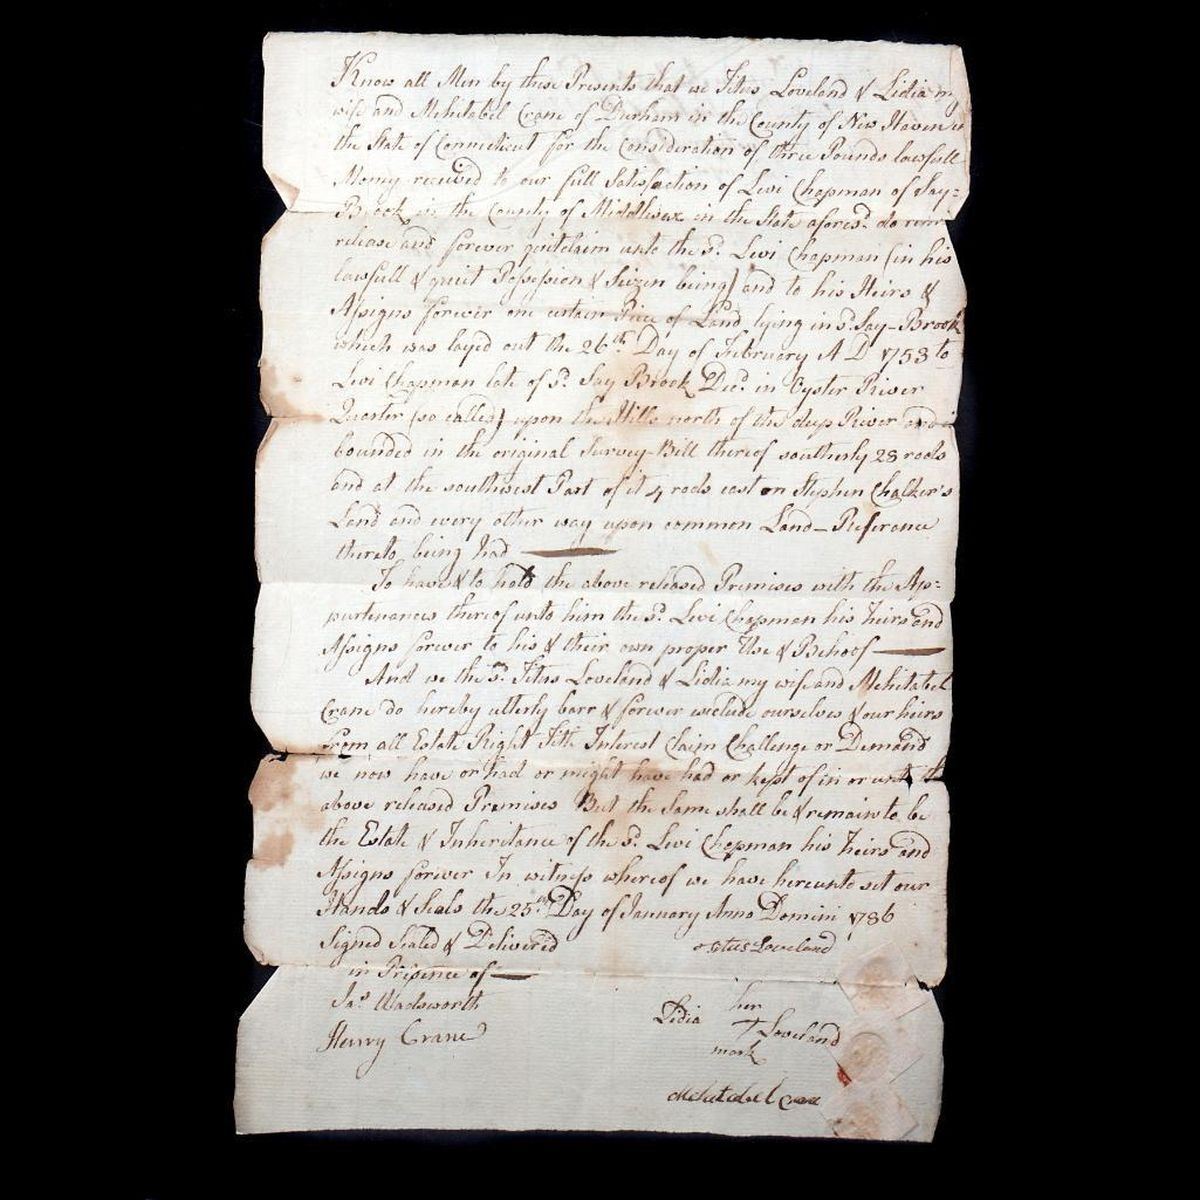 Know all Men by these Presents that we Titus Loveland & Lidia my
wife and Mehitabel Crane of Durham in the County of New Haven in
the State of Connecticut for the Consideration of three Pounds lawfull
Money received to our full Satisfaction of Levi Chapman of Say=
Brook in the County of Middlesex in the State afores.d do remise
release and forever quitclaim unto the s.d Levi Chapman (in his
lawfull & quiet Possession & Seizen being) and to his Heirs &
Assigns forever one certain Piece of Land lying in s.d Say-Brook
which was layed out the 26th Day of February A D 1753 to
Levi Chapman late of s.d Say Brook Dec.d in Oyster River
Quarter (so called) upon the Hills north of the deep River and is
bounded in the original Survey-Bill thereof southerly 28 rods
and at the southwest Part of it 4 rods east on Stephen Chalker's
Land and every other way upon common Land - Referance
thereto being had —
To have & to hold the above released Premises with the Ap=
purtenances thereof unto him the s.d Levi Chapman his Heirs and
Assigns forever to his & their own proper Use & Behoof —
And we the s.d Titus Loveland & Lidia my wife and Mehitabel
Crane do hereby utterly barr & forever exclude ourselves & our heirs
from all Estate Right Title Interest Claim Challenge or Demand
we now have or had or might have had or kept of in or unto the
above released Premises But the Same shall be & remain to be
the Estate & Inheritance of the s.d Levi Chapman his Heirs and
Assigns forever In witness whereof we have hereunto set our
Hands & Seals the 25.th Day of January Anno Domini 1786
Signed Sealed & Delivered
in Presence of —
Ja.s Wadsworth
Henry Crane
Titus Loveland
her
Lidia + Loveland
mark
Mehitabel Crane